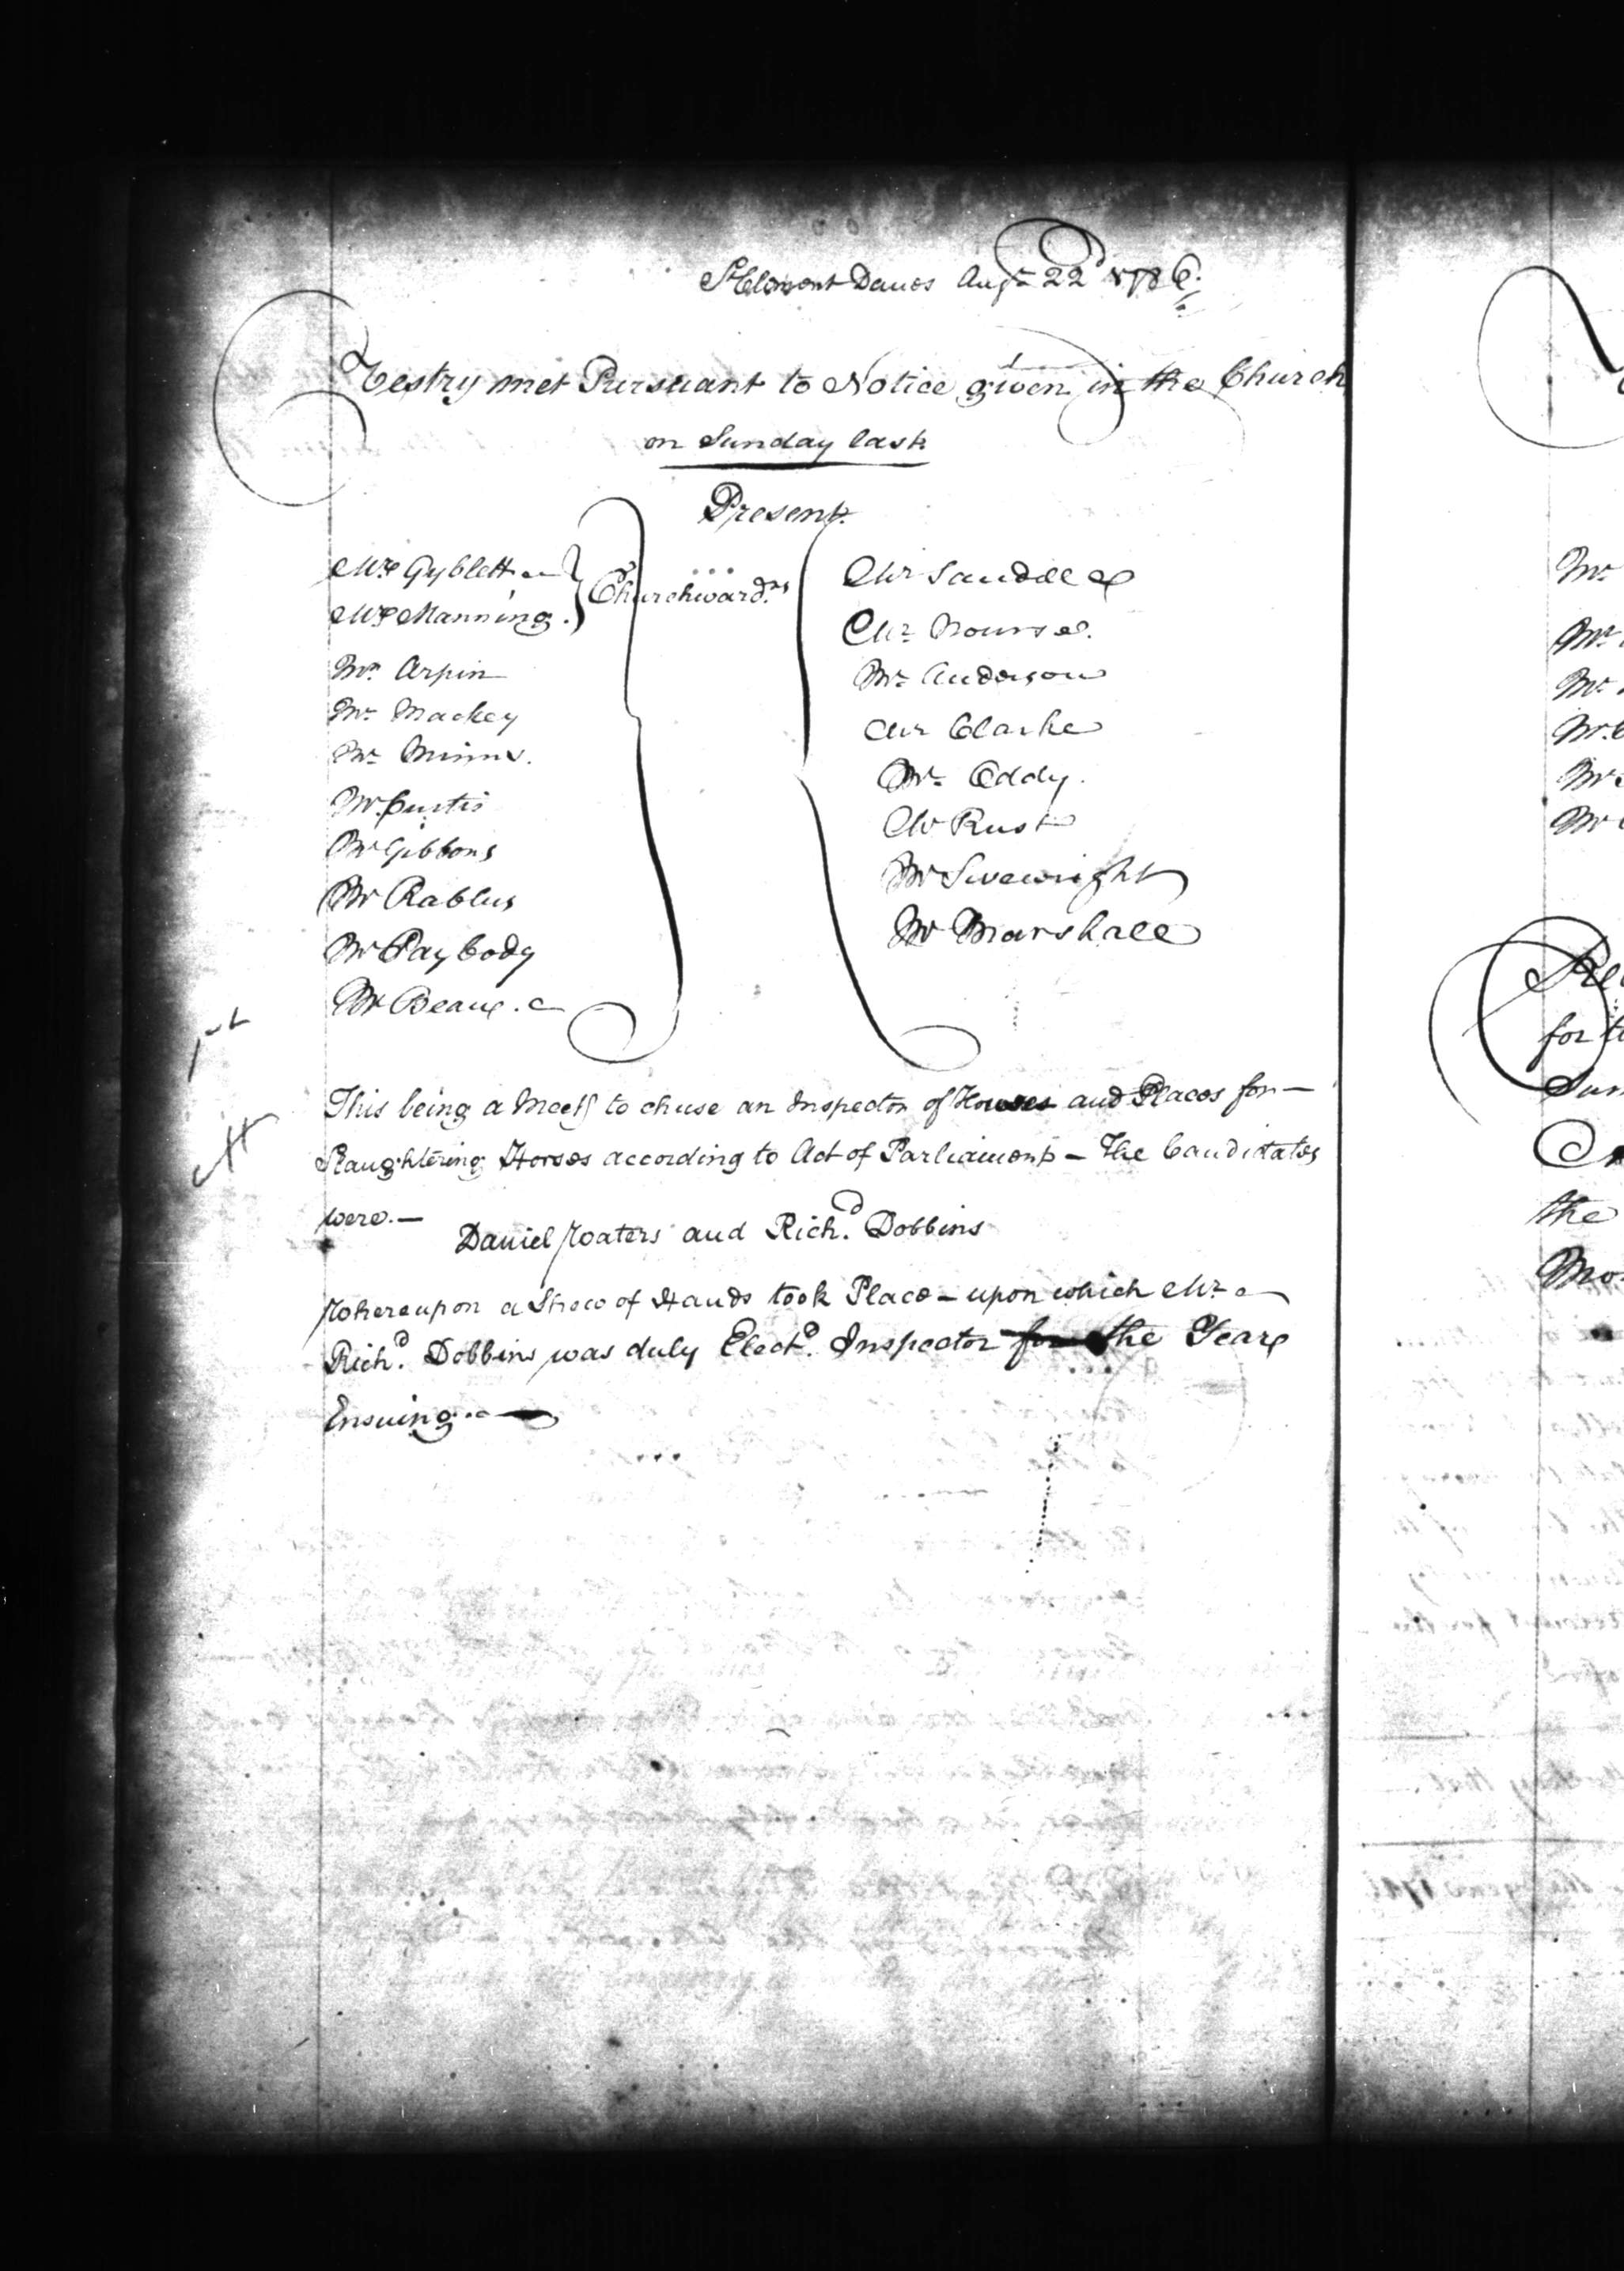 St Clement Danes Augst 22d 1786.
Vestry met Pursuant to Notice given in the Church
on Sunday last
Present.
Mr Gyblett
Mr Manning. Churchwardns
Mr Arpin
Mr Mackey
Mr Minns.
Mr Curtis
Mr Gibbons
Mr Rablus
Mr Paybody
Mr Beaux.
Mr Sandell
Mr Nourse.
Mr Anderson
Mr Clarke
Mr Eddy.
Mr Rust
Mr Sivewright
Mr Marshall
This being a Meetg to chuse an Inspector of Houses and Places for —
Slaughtering Horses according to Act of Parliament — The Candidates
were. —
Daniel Waters and Richd. Dobbins
Whereupon a Shew of Hands took Place — upon which Mr
Richd. Dobbins was duly Electd. Inspector for the Year
Ensuing. —
Mr
Mr
Mr
Mr
Mr
Mr
for
the